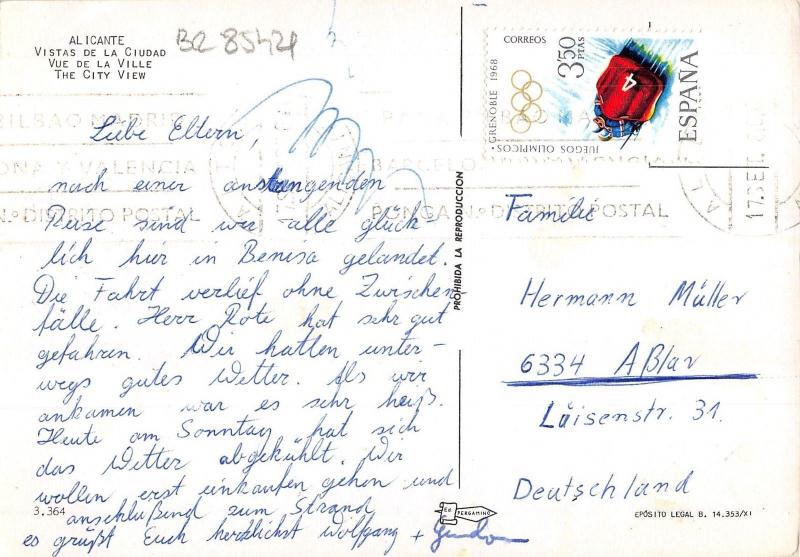 ALICANTE
VISTAS DE LA CIUDAD
VUE DE LA VILLE
THE CITY VIEW
BR 85421
Liebe Eltern,
nach einer anstrengenden
Reise sind wir alle glück-
lich hier in Benisa gelandet.
Die Fahrt verlief ohne Zwischen
fälle. Herr Rote hat sehr gut
gefahren. Wir hatten unter-
wegs gutes Wetter. Als wir
ankamen war es sehr heiß.
Heute am Sonntag hat sich
das Wetter abgekühlt. Wir
wollen erst einkaufen gehen und
anschlußend zum Strand
es grüßt Euch herzlichst Wolfgang +
3.364
PROHIBIDA LA REPRODUCCION
Ed. PERGAMINO
CORREOS
3'50 PTAS
GRENOBLE 1968
JUEGOS OLIMPICOS
4
ESPAÑA
BILBAO MADRID
VALENCIA
DISTRITO POSTAL
BARCELO
PONGA N.o DISTRITO POSTAL
17 SE
Familie
Hermann Müller
6334 Aßlar
Luisenstr. 31.
Deutschland
EPÓSITO LEGAL B. 14.353/XI